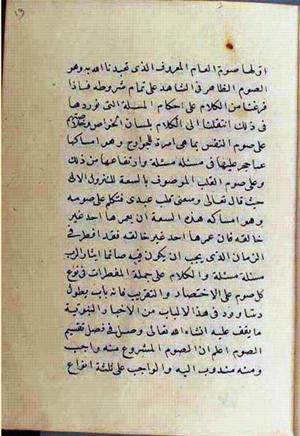 اولها صوم العام المعروف الذى تعبدنا الله به وهو
الصوم الظاهر فى الشاهد على تمام شروطه فاذا
فرغنا من الكلام على احكام المسئلة التى نوردها
فى ذلك انتقلنا الى الكلام بلسان الخواص
على صوم النفس بما هى امرة للجوارح وهو امساكها
عما حجر عليها فى مسئلة مسئلة وارتفاعها عن ذلك
وعلى صوم القلب الموصوف بالسعة للنزول الالهى
حيث قال تعالى وسعنى قلب عبدى فنتكلم على صومه
وهو امساكه هذه السعة ان يعمرها احد غير
خالقه فان عمرها احد غير خالقه فقد افطر فى
الزمان الذى يجب ان يكون فيه صائما ايثارا لربه
مسئلة مسئلة والكلام على جملة المفطرات فى نوع
كل صوم على الاختصار والتقريب فانه باب يطول
وسنورد فى هذا الباب من الاخبار النبوية
ما يقف عليه انشاء الله تعالى وصل فى فصل تقسيم
الصوم اعلم ان الصوم المشروع منه واجب
ومنه مندوب اليه والواجب على ثلثة انواع